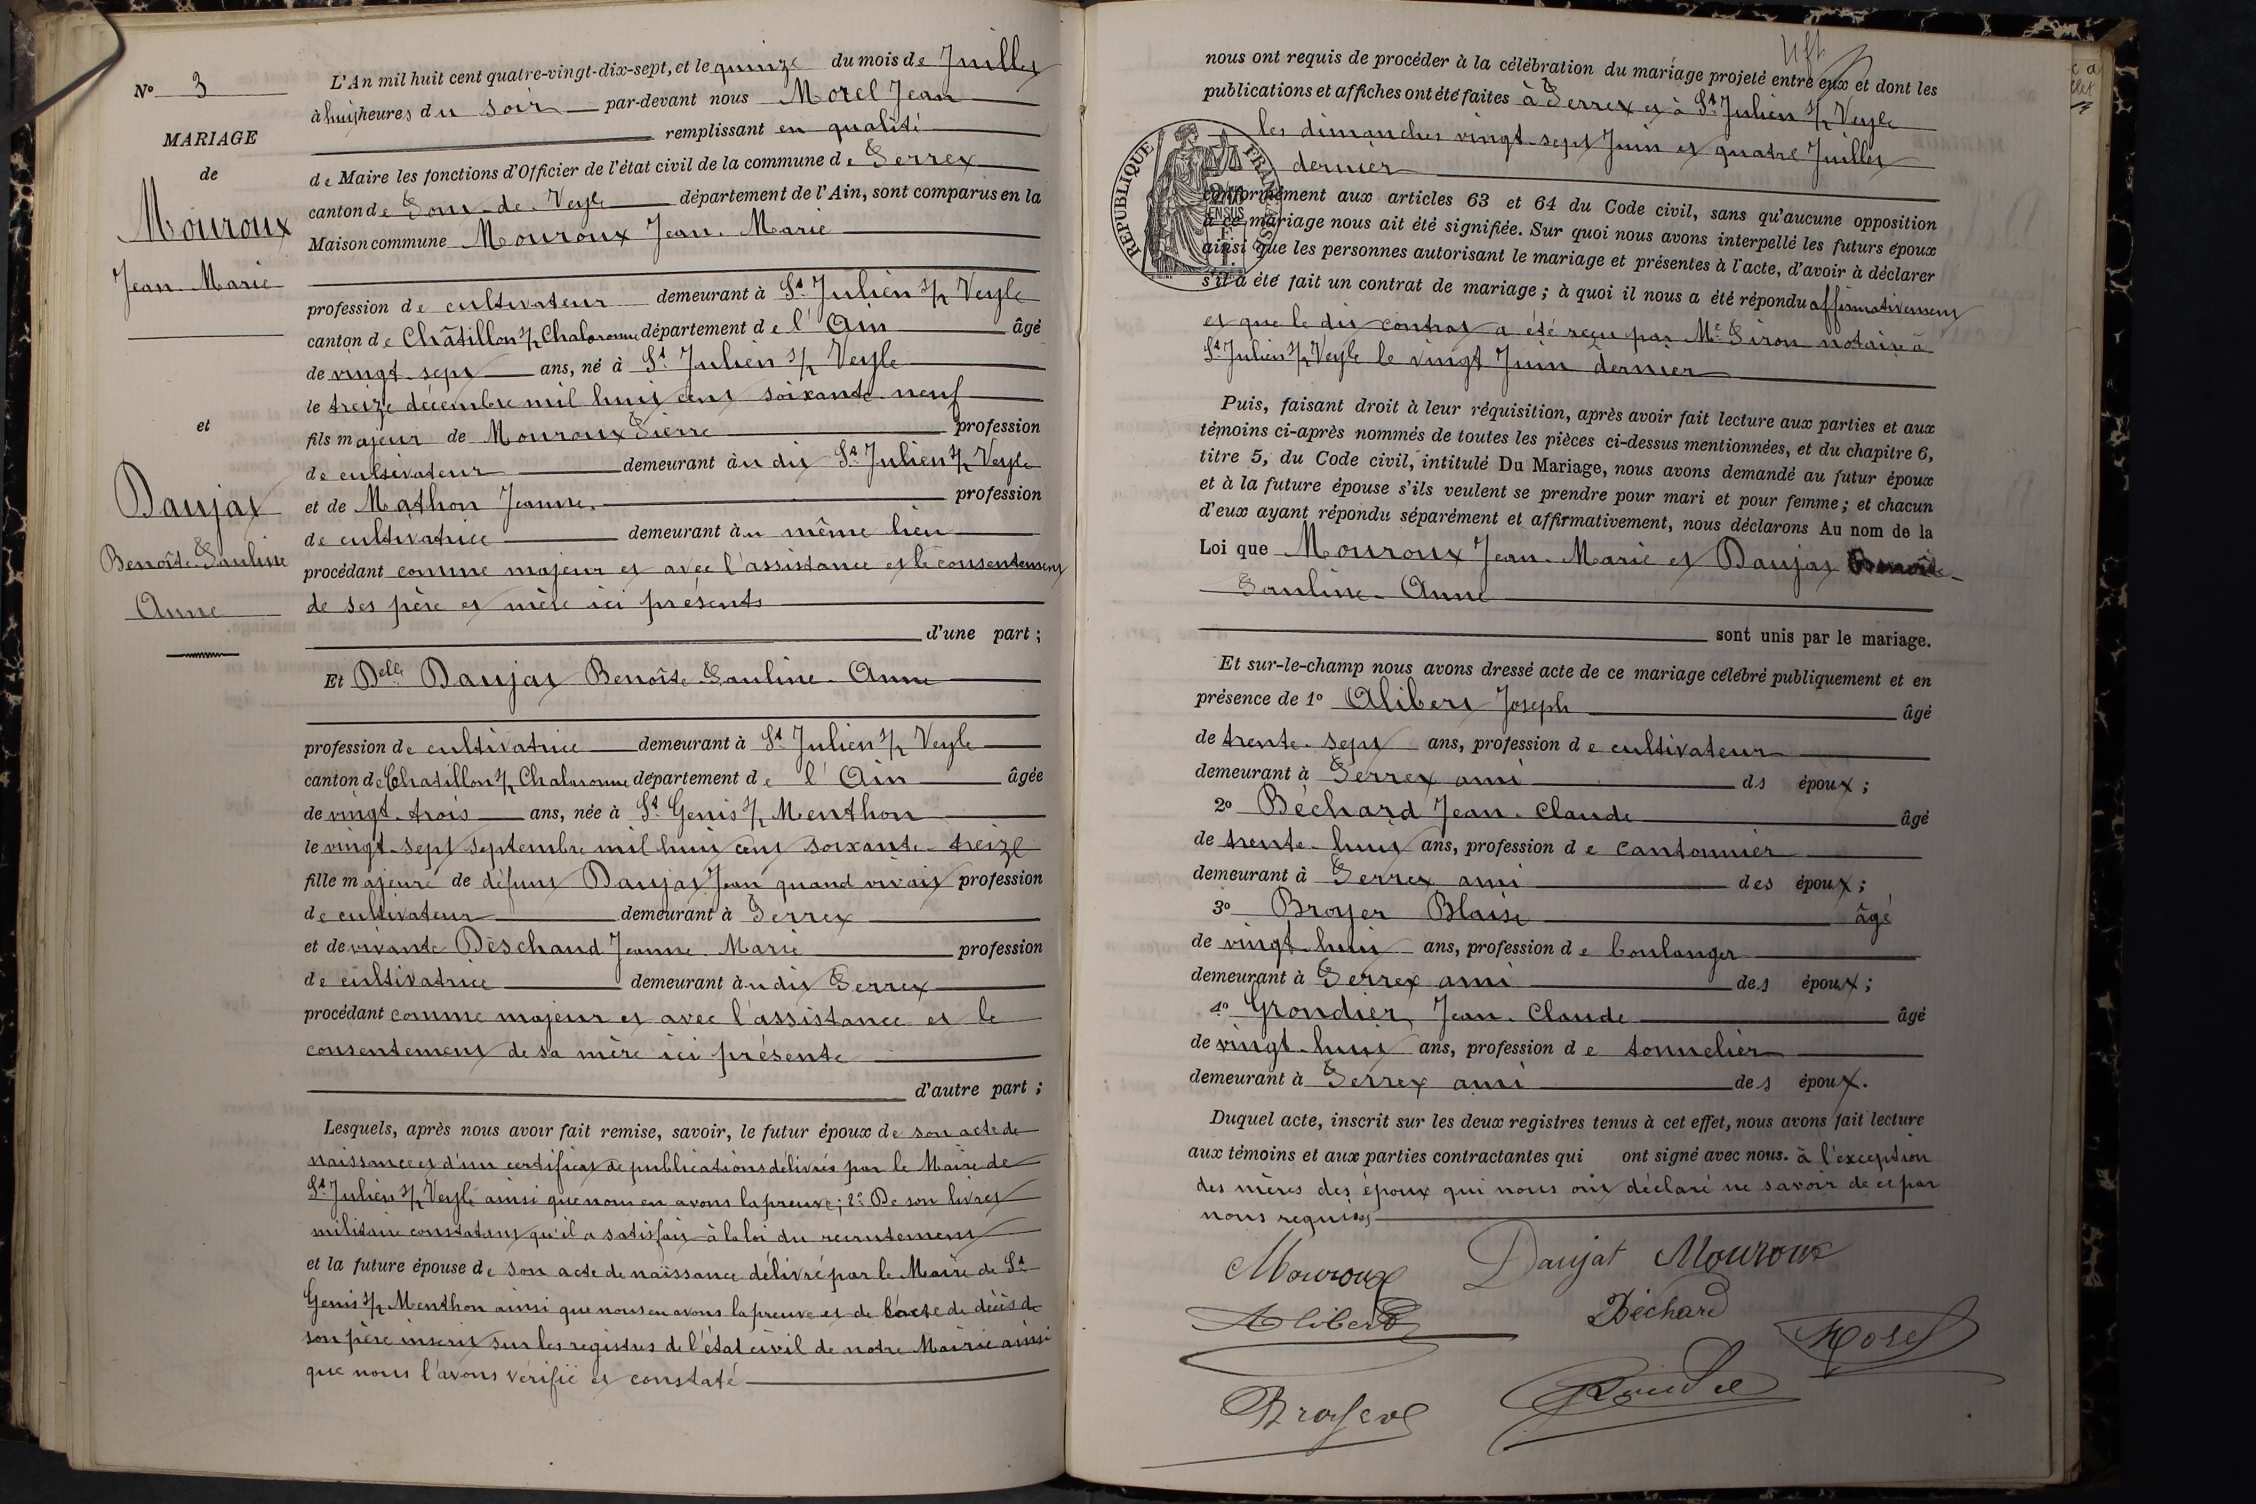 N° 3
MARIAGE
de
Mouroux
Jean Marie
et
Daujat
Benoîte Pauline
Anne
L'An mil huit cent quatre-vingt-dix-sept, et le quinze du mois de Juillet
à huit heures du soir par-devant nous Morel Jean
remplissant en qualité
de Maire les fonctions d'Officier de l'état civil de la commune de Perrex
canton de Pont-de-Veyle département de l'Ain, sont comparus en la
Maison commune Mouroux Jean-Marie
profession de cultivateur demeurant à St Julien s/r Veyle
canton de Châtillon s/r Chalaronne département de l'Ain âgé
de vingt-sept ans, né à St Julien s/r Veyle
le treize décembre mil huit cent soixante-neuf
fils majeur de Mouroux Pierre profession
de cultivateur demeurant au dit St Julien s/r Veyle
et de Mathon Jeanne profession
de cultivatrice demeurant au même lieu
procédant comme majeur et avec l'assistance et le consentement
de ses père et mère ici présents
d'une part ;
Et Delle Daujat Benoîte-Pauline-Anne
profession de cultivatrice demeurant à St Julien s/r Veyle
canton de Chatillon s/r Chalaronne département de l'Ain âgée
de vingt-trois ans, née à St Genis s/r Menthon
le vingt-sept septembre mil huit cent soixante-treize
fille majeure de défunt Daujat Jean quand vivait profession
de cultivateur demeurant à Perrex
et de vivante Deschand Jeanne-Marie profession
de cultivatrice demeurant au dit Perrex
procédant comme majeur et avec l'assistance et le
consentement de sa mère ici présente
d'autre part ;
Lesquels, après nous avoir fait remise, savoir, le futur époux de son acte de
naissance et d'un certificat de publications délivrés par le Maire de
St Julien s/r Veyle ainsi que nous en avons la preuve ; 2° De son livret
militaire constatant qu'il a satisfait à la loi du recrutement
et la future épouse de son acte de naissance délivré par le Maire de St
Genis s/r Menthon ainsi que nous en avons la preuve et de l'acte de décès de
son père inscrit sur les registres de l'état civil de notre Mairie ainsi
que nous l'avons vérifié et constaté
nous ont requis de procéder à la célébration du mariage projeté entre eux et dont les
publications et affiches ont été faites à Perrex et à St Julien s/r Veyle
les dimanches vingt-sept Juin et quatre Juillet
dernier
RÉPUBLIQUE FRANÇAISE
conformément aux articles 63 et 64 du Code civil, sans qu'aucune opposition
à ce mariage nous ait été signifiée. Sur quoi nous avons interpellé les futurs époux
ainsi que les personnes autorisant le mariage et présentes à l'acte, d'avoir à déclarer
s'il a été fait un contrat de mariage ; à quoi il nous a été répondu affirmativement
et que le dit contrat a été reçu par Me Piron notaire à
St Julien s/r Veyle le vingt Juin dernier
Puis, faisant droit à leur réquisition, après avoir fait lecture aux parties et aux
témoins ci-après nommés de toutes les pièces ci-dessus mentionnées, et du chapitre 6,
titre 5, du Code civil, intitulé Du Mariage, nous avons demandé au futur époux
et à la future épouse s'ils veulent se prendre pour mari et pour femme ; et chacun
d'eux ayant répondu séparément et affirmativement, nous déclarons Au nom de la
Loi que Mouroux Jean-Marie et Daujat Benoîte-
Pauline-Anne
sont unis par le mariage.
Et sur-le-champ nous avons dressé acte de ce mariage célébré publiquement et en
présence de 1° Alibert Joseph âgé
de trente-sept ans, profession de cultivateur
demeurant à Perrex ami ds époux ;
2° Béchard Jean-Claude âgé
de trente-huit ans, profession de cantonnier
demeurant à Perrex ami des époux ;
3° Broyer Blaise âgé
de vingt-huit ans, profession de boulanger
demeurant à Perrex ami des époux ;
4° Grondier Jean-Claude âgé
de vingt-huit ans, profession de tonnelier
demeurant à Perrex ami des époux.
Duquel acte, inscrit sur les deux registres tenus à cet effet, nous avons fait lecture
aux témoins et aux parties contractantes qui ont signé avec nous. à l'exception
des mères des époux qui nous ont déclaré ne savoir de ce par
nous requises
Mouroux Daujat Mouroux
Alibert Béchard Morel
Broyer